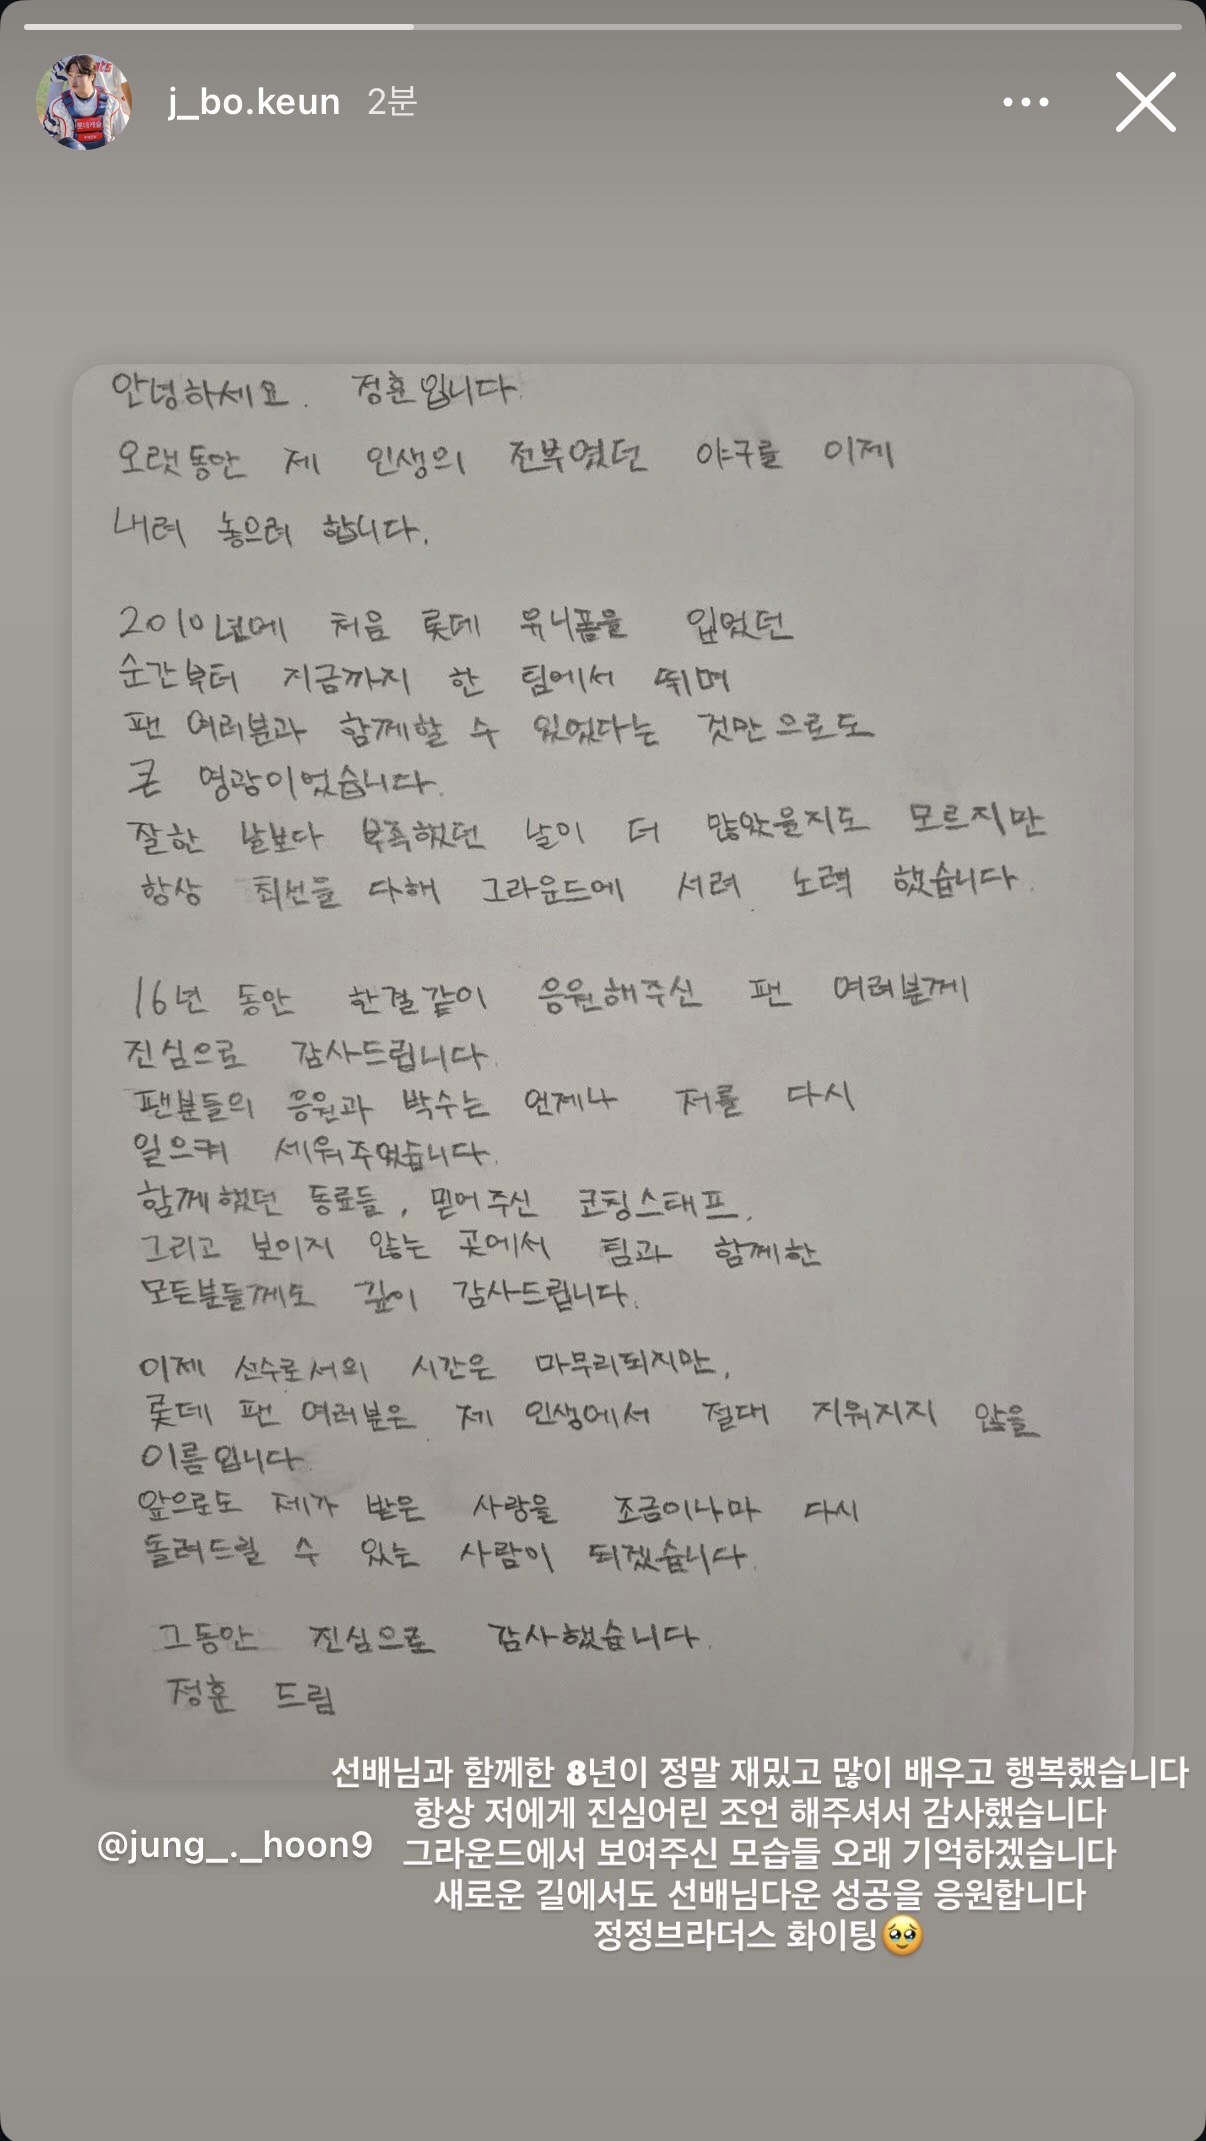 j_bo.keun 2분
안녕하세요. 정훈입니다.
오랫동안 제 인생의 전부였던 야구를 이제
내려 놓으려 합니다.
2010년에 처음 롯데 유니폼을 입었던
순간부터 지금까지 한 팀에서 뛰며
팬 여러분과 함께할 수 있었다는 것만으로도
큰 영광이었습니다.
잘한 날보다 부족했던 날이 더 많았을지도 모르지만
항상 최선을 다해 그라운드에 서려 노력 했습니다.
16년 동안 한결같이 응원해주신 팬 여러분께
진심으로 감사드립니다.
팬분들의 응원과 박수는 언제나 저를 다시
일으켜 세워주었습니다.
함께했던 동료들, 믿어주신 코칭스태프,
그리고 보이지 않는 곳에서 팀과 함께한
모든분들께도 깊이 감사드립니다.
이제 선수로서의 시간은 마무리되지만,
롯데 팬 여러분은 제 인생에서 절대 지워지지 않을
이름입니다.
앞으로도 제가 받은 사랑을 조금이나마 다시
돌려드릴 수 있는 사람이 되겠습니다.
그동안 진심으로 감사했습니다.
정훈 드림
선배님과 함께한 8년이 정말 재밌고 많이 배우고 행복했습니다
항상 저에게 진심어린 조언 해주셔서 감사했습니다
@jung_._hoon9
그라운드에서 보여주신 모습들 오래 기억하겠습니다
새로운 길에서도 선배님다운 성공을 응원합니다
정정브라더스 화이팅🥹